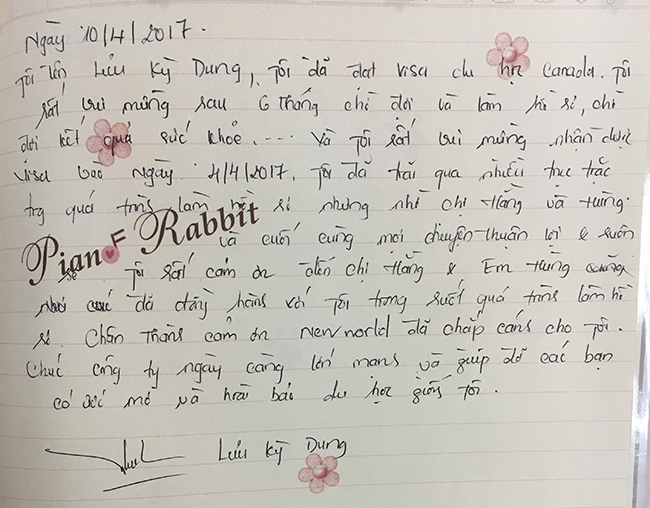 Ngày 10/4/2017.
Tôi tên Lưu Kỳ Dung, tôi đã đạt visa du học Canada. Tôi
rất vui mừng sau 6 tháng chờ đợi và làm hồ sơ, chờ
đợi kết quả sức khỏe.... Và tôi rất vui mừng nhận được
visa vào ngày 4/4/2017. Tôi đã trải qua nhiều trục trặc
trg quá trình làm hồ sơ nhưng nhờ chị Hằng và Hưng.
Piano Rabbit
và cuối cùng mọi chuyện thuận lợi & suôn
sẻ. Tôi rất cảm ơn đến chị Hằng & Em Hưng cũng
như đã đồng hành với tôi trong suốt quá trình làm hồ
sơ. Chân thành cảm ơn Newworld đã chắp cánh cho tôi.
Chúc công ty ngày càng lớn mạnh và giúp đỡ các bạn
có ước mơ và hoài bão du học giống tôi.
Lưu Kỳ Dung